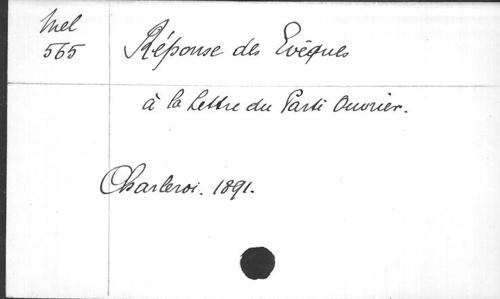 Mel
565
Réponse des Evêques
à la Lettre du Parti Ouvrier.
Charleroi. 1891.